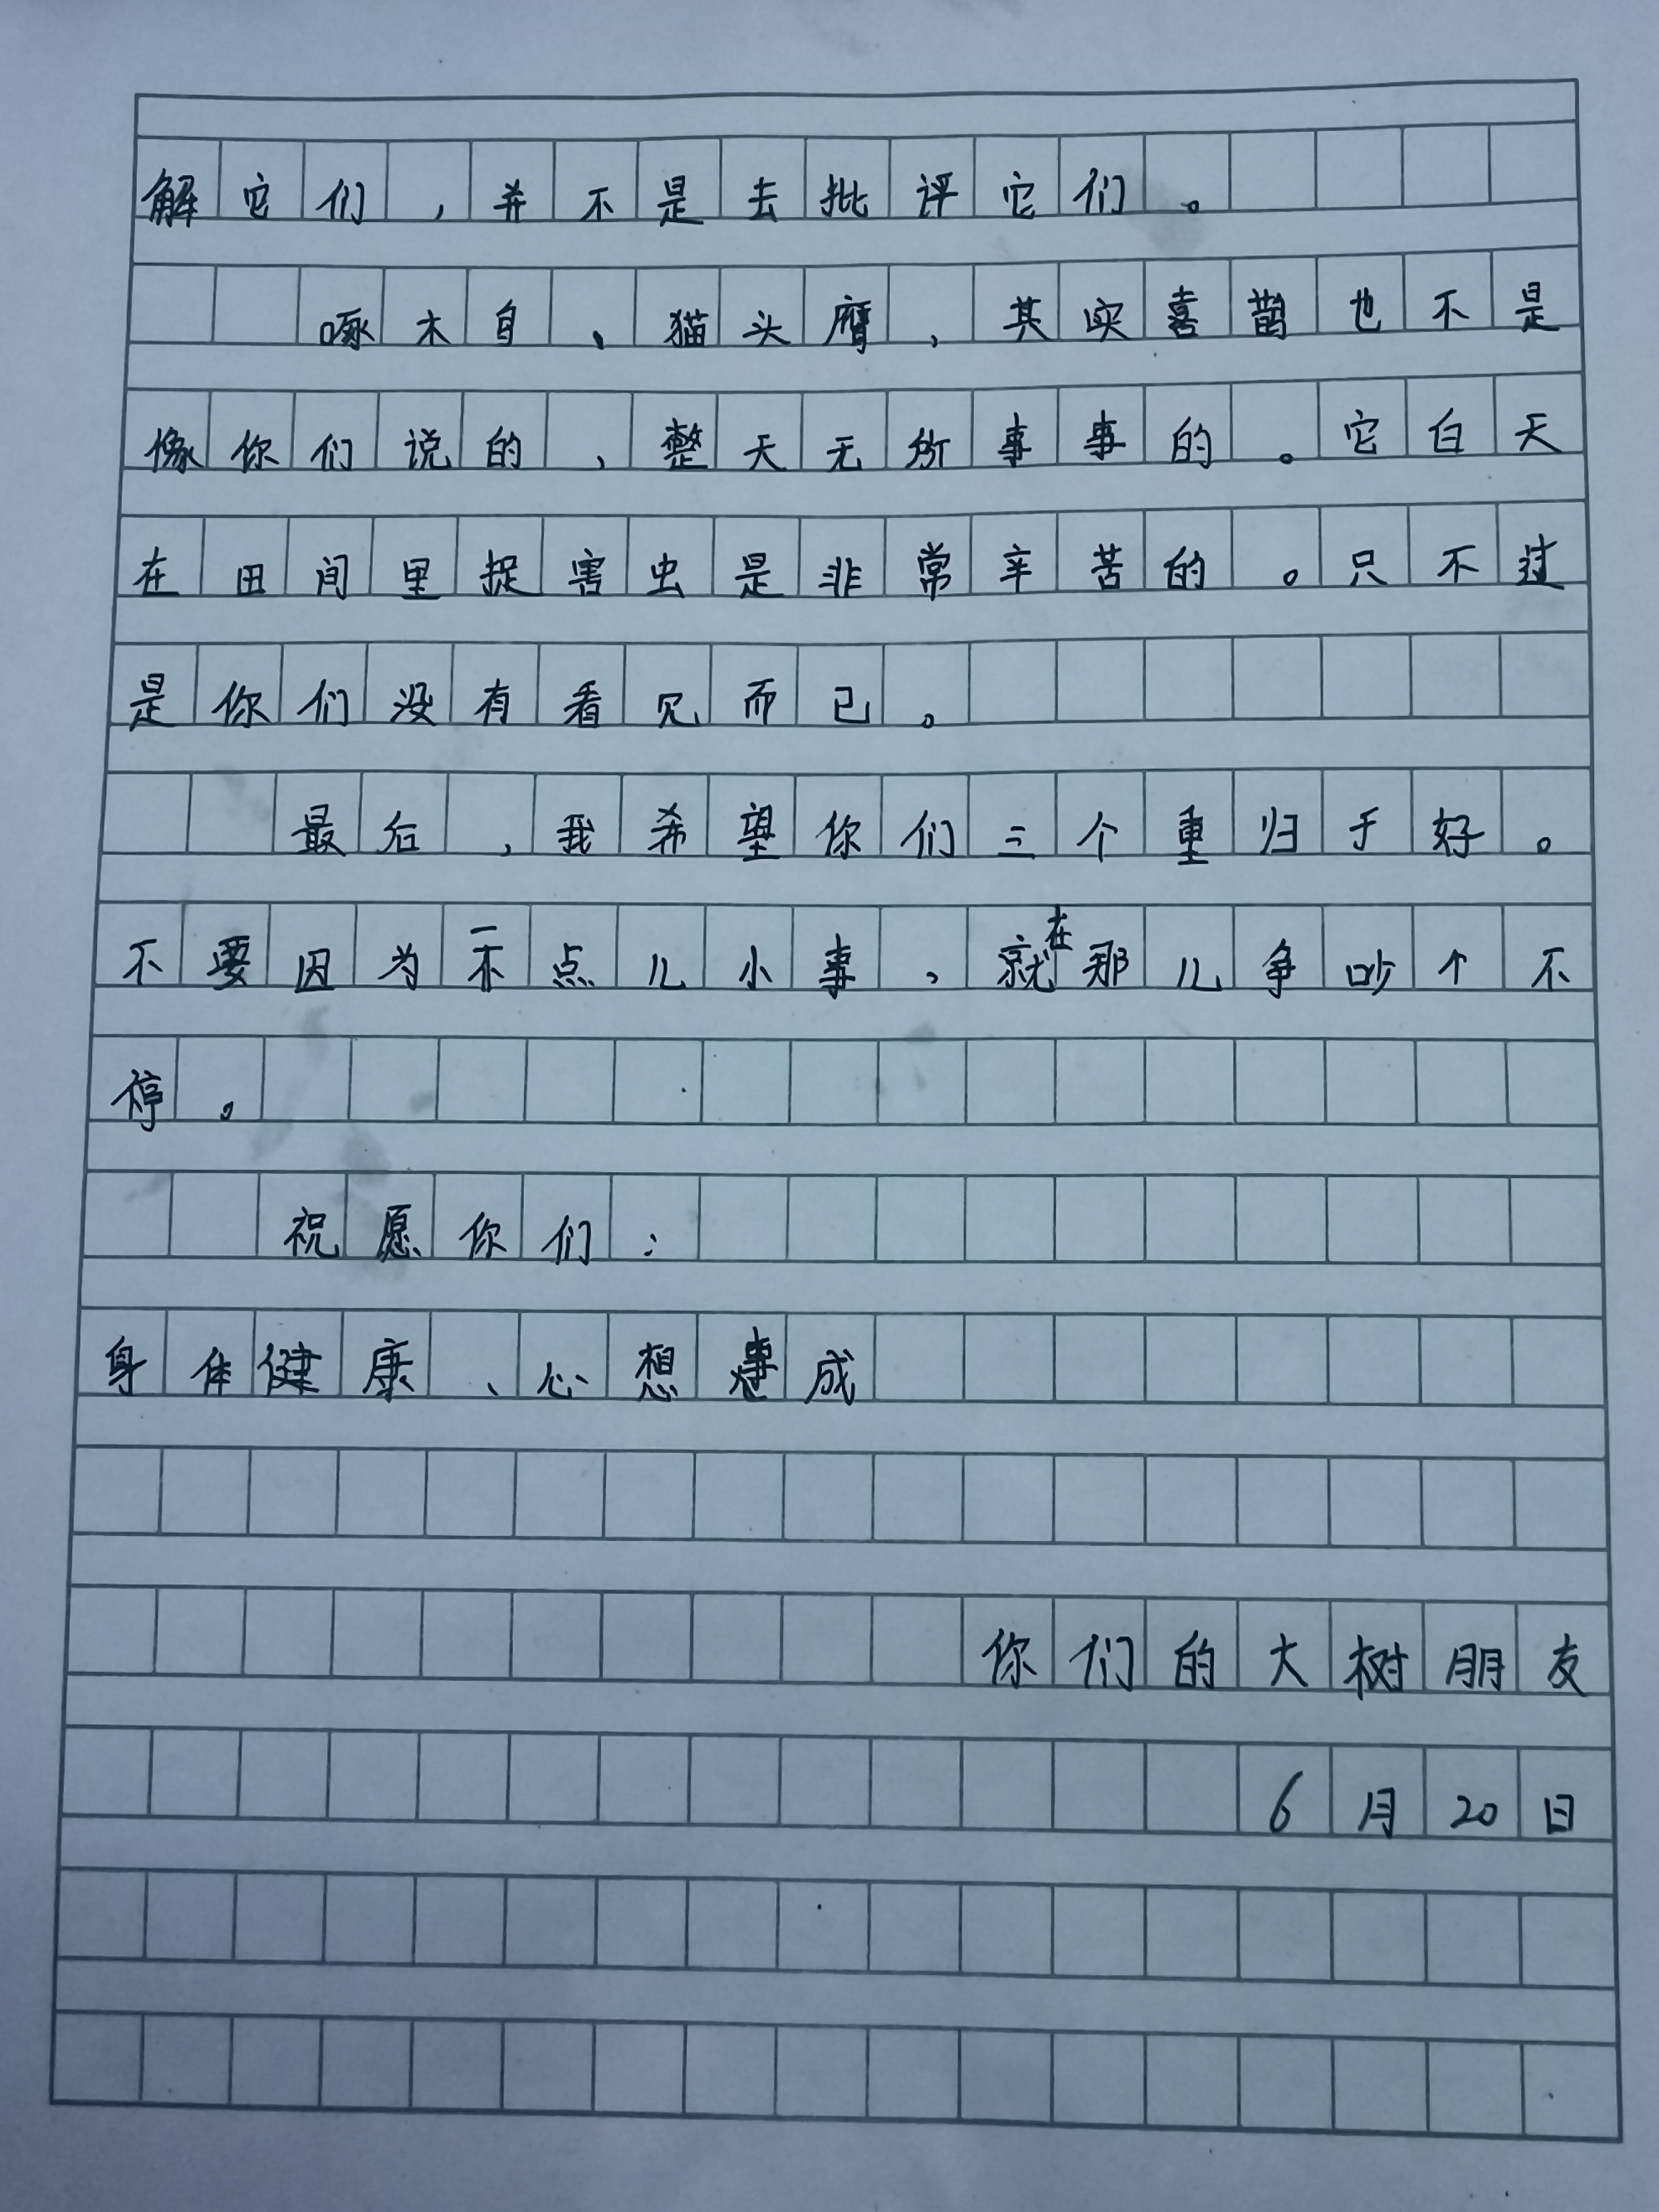 解它们，并不是去批评它们。
啄木自、猫头鹰，其实喜鹊也不是
像你们说的，整天无所事事的。它白天
在田间里捉害虫是非常辛苦的。只不过
是你们没有看见而已。
最后，我希望你们三个重归于好。
不要因为一点儿小事，就在那儿争吵个不
停。
祝愿你们：
身体健康、心想事成
你们的大树朋友
6月20日